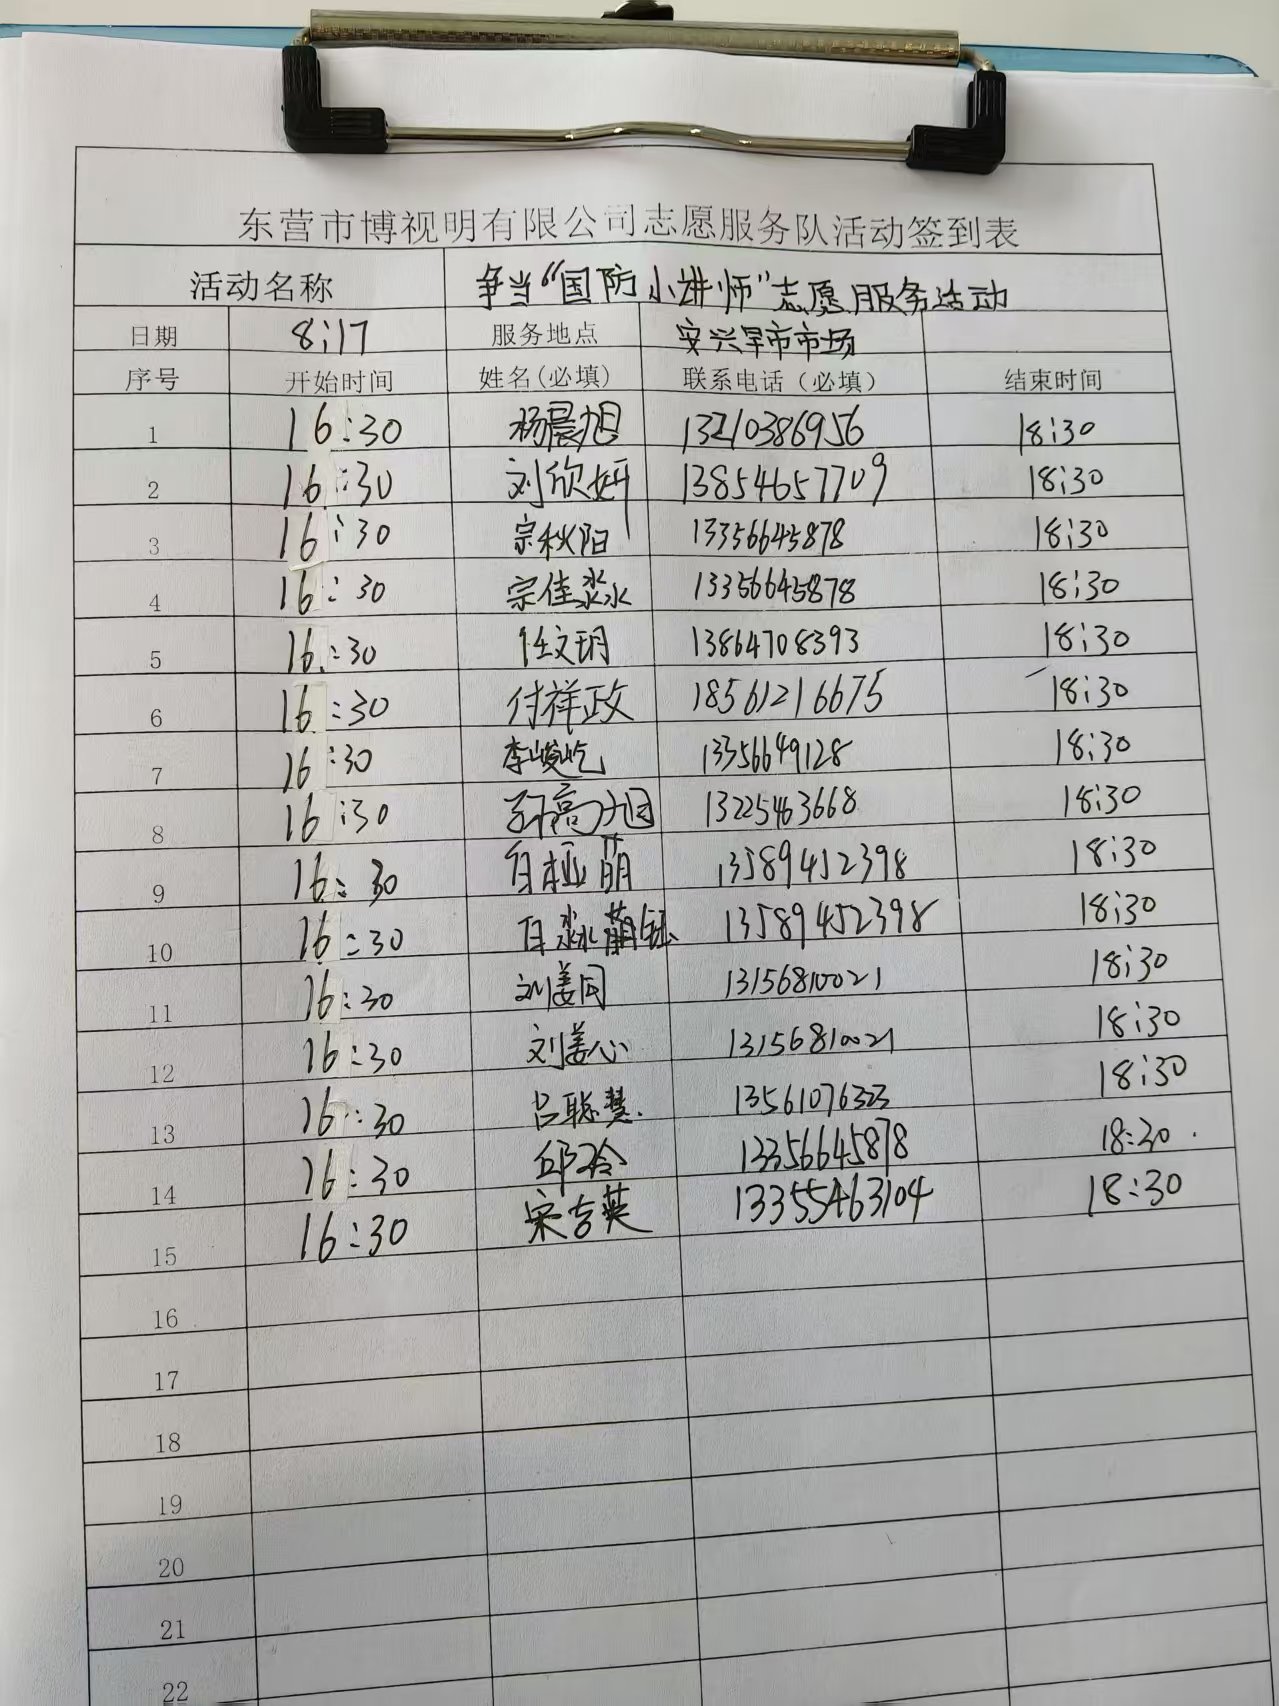 东营市博视明有限公司志愿服务队活动签到表
活动名称 争当“国防小讲师”志愿服务活动
日期 8:17 服务地点 安兴早市市场
序号 开始时间 姓名(必填) 联系电话（必填） 结束时间
1 16:30 杨晨旭 13210386956 18:30
2 16:30 刘欣妍 13854657709 18:30
3 16:30 宗秋阳 13356645878 18:30
4 16:30 宗佳淼 13356645878 18:30
5 16:30 任文玥 13864708393 18:30
6 16:30 付祥政 18561216675 18:30
7 16:30 李峻屹 13356649128 18:30
8 16:30 高旭 13225463668 18:30
9 16:30 萌 13589452398 18:30
10 16:30 13589452398 18:30
11 16:30 刘姜同 13156810021 18:30
12 16:30 刘姜心 13156810021 18:30
13 16:30 吕聪慧 13561076323 18:30
14 16:30 邱玲 13356645878 18:30
15 16:30 宋吉英 13355463104 18:30
16
17
18
19
20
21
22